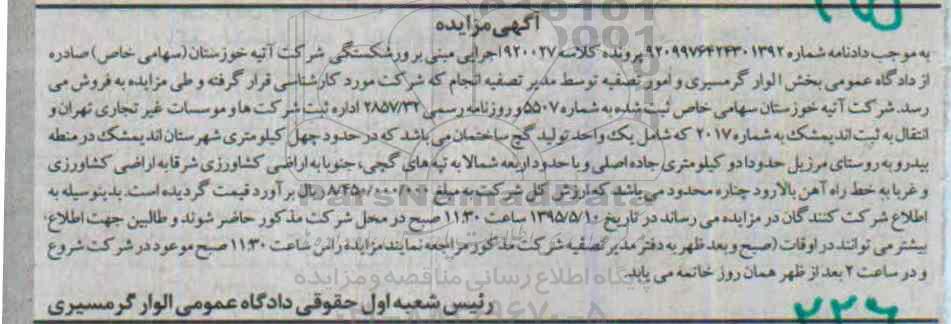 آگهی مزایده
به موجب دادنامه شماره ۹۲۰۹۹۷۶۴۲۴۳۰۱۳۹۲ پرونده کلاسه ۹۲۰۰۲۷ اجرایی مبنی بر ورشکستگی شرکت آتیه خوزستان (سهامی خاص) صادره
از دادگاه عمومی بخش الوار گرمسیری و امور تصفیه توسط مدیر تصفیه انجام که شرکت مورد کارشناسی قرار گرفته و طی مزایده به فروش می
رسد. شرکت آتیه خوزستان سهامی خاص ثبت شده به شماره ۵۵۰۷ و روزنامه رسمی ۲۸۵۷/۳۲ اداره ثبت شرکت ها و موسسات غیر تجاری تهران و
انتقال به ثبت اندیمشک به شماره ۲۰۱۷ که شامل یک واحد تولید گچ ساختمان می باشد که در حدود چهل کیلومتری شهرستان اندیمشک در منطه
بیدروبه روستای مرزیل حدودا دو کیلومتری جاده اصلی و با حدود اربعه شمالا به تپه های گچی، جنوبا به اراضی کشاورزی شرقا به اراضی کشاورزی
و غربا به خط راه آهن بالارود چناره محدود می باشد که ارزش کل شرکت به مبلغ ۸/۴۵۰/۰۰۰/۰۰۰ ریال برآورد قیمت گردیده است. بدینوسیله به
اطلاع شرکت کنندگان در مزایده می رساند در تاریخ ۱۳۹۵/۵/۱۰ ساعت ۱۱:۳۰ صبح در محل شرکت مذکور حاضر شوند و طالبین جهت اطلاع
بیشتر می توانند در اوقات (صبح و بعد ظهر به دفتر مدیر تصفیه شرکت مذکور مراجعه نمایند مزایده راس ساعت ۱۱:۳۰ صبح موعود در شرکت شروع
و در ساعت ۲ بعد از ظهر همان روز خاتمه می یابد.
پایگاه اطلاع رسانی مناقصه و مزایده
رئیس شعبه اول حقوقی دادگاه عمومی الوار گرمسیری
ParsNamadData
۲۲۶